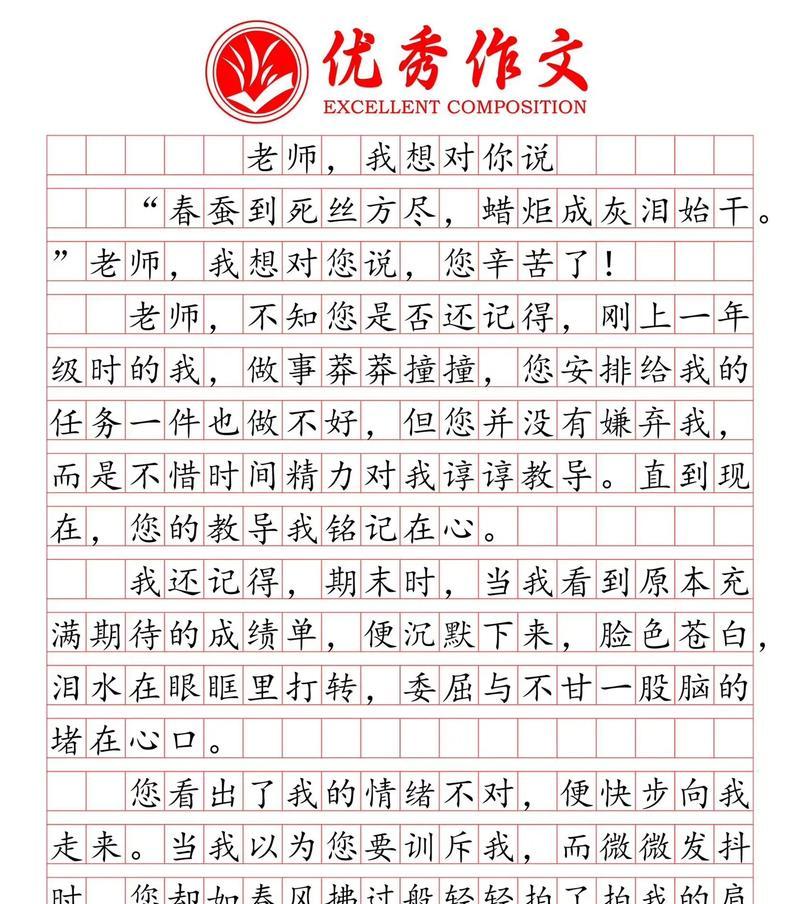 优秀作文
EXCELLENT COMPOSITION
老师，我想对你说
“春蚕到死丝方尽，蜡炬成灰泪始干。
”老师，我想对您说，您辛苦了！
老师，不知您是否还记得，刚上一年
级时的我，做事莽莽撞撞，您安排给我的
任务一件也做不好，但您并没有嫌弃我，
而是不惜时间精力对我谆谆教导。直到现
在，您的教导我铭记在心。
我还记得，期末时，当我看到原本充
满期待的成绩单，便沉默下来，脸色苍白，
泪水在眼眶里打转，委屈与不甘一股脑的
堵在心口。
您看出了我的情绪不对，便快步向我
走来。当我以为您要训斥我，而微微发抖
时，您却如春风拂过般轻轻拍了拍我的肩